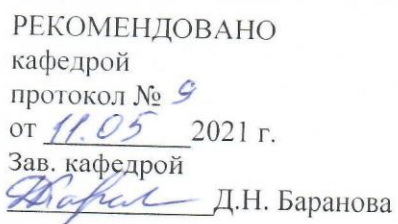 РЕКОМЕНДОВАНО
кафедрой
протокол № 9
от 11.05 2021 г.
Зав. кафедрой
Д.Н. Баранова